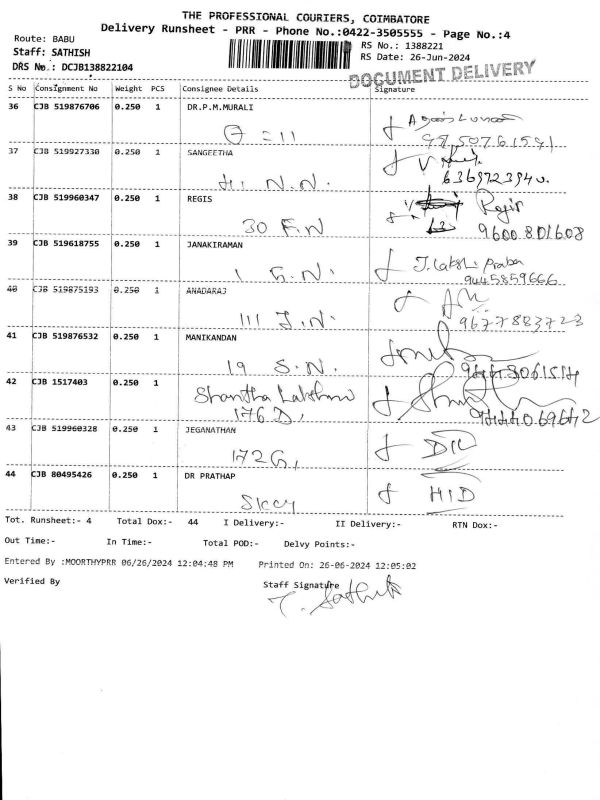 THE PROFESSIONAL COURIERS, COIMBATORE
Delivery Runsheet - PRR - Phone No.:0422-3505555 - Page No.:4
Route: BABU
RS No.: 1388221
Staff: SATHISH
RS Date: 26-Jun-2024
DRS No.: DCJB138822104
DOCUMENT DELIVERY
S No Consignment No Weight PCS Consignee Details Signature
36 CJB 519876706 0.250 1 DR.P.M.MURALI
9750761591
37 CJB 519927330 0.250 1 SANGEETHA
N.N. 6369723940
38 CJB 519960347 0.250 1 REGIS Regis
30 F.N 9600801608
39 CJB 519618755 0.250 1 JANAKIRAMAN J. Lakshi praba
1 G.N. 9445859666
40 CJB 519875193 0.250 1 ANADARAJ
111 J.N. 9677883723
41 CJB 519876532 0.250 1 MANIKANDAN
19 S.N.
42 CJB 1517403 0.250 1 Shantha Lakshmi
176 D,
43 CJB 519960328 0.250 1 JEGANATHAN
172 G,
44 CJB 80495426 0.250 1 DR PRATHAP HID
Tot. Runsheet:- 4 Total Dox:- 44 I Delivery:- II Delivery:- RTN Dox:-
Out Time:- In Time:- Total POD:- Delvy Points:-
Entered By :MOORTHYPRR 06/26/2024 12:04:48 PM Printed On: 26-06-2024 12:05:02
Verified By Staff Signature